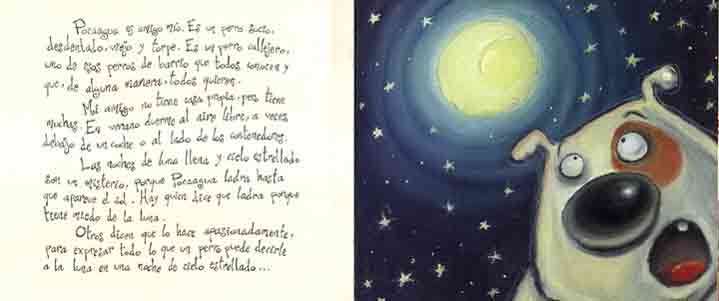 Pocaagua es amigo mío. Es un perro sucio,
desdentado, viejo y torpe. Es un perro callejero,
uno de esos perros de barrio que todos conocen y
que, de alguna manera, todos quieren.
Mi amigo no tiene casa propia, pero tiene
muchas. En verano duerme al aire libre, a veces
debajo de un coche o al lado de los contenedores.
Las noches de luna llena y cielo estrellado
son un misterio, porque Pocaagua ladra hasta
que aparece el sol. Hay quien dice que ladra porque
tiene miedo de la luna.
Otros dicen que lo hace apasionadamente,
para expresar todo lo que un perro puede decirle
a la luna en una noche de cielo estrellado...